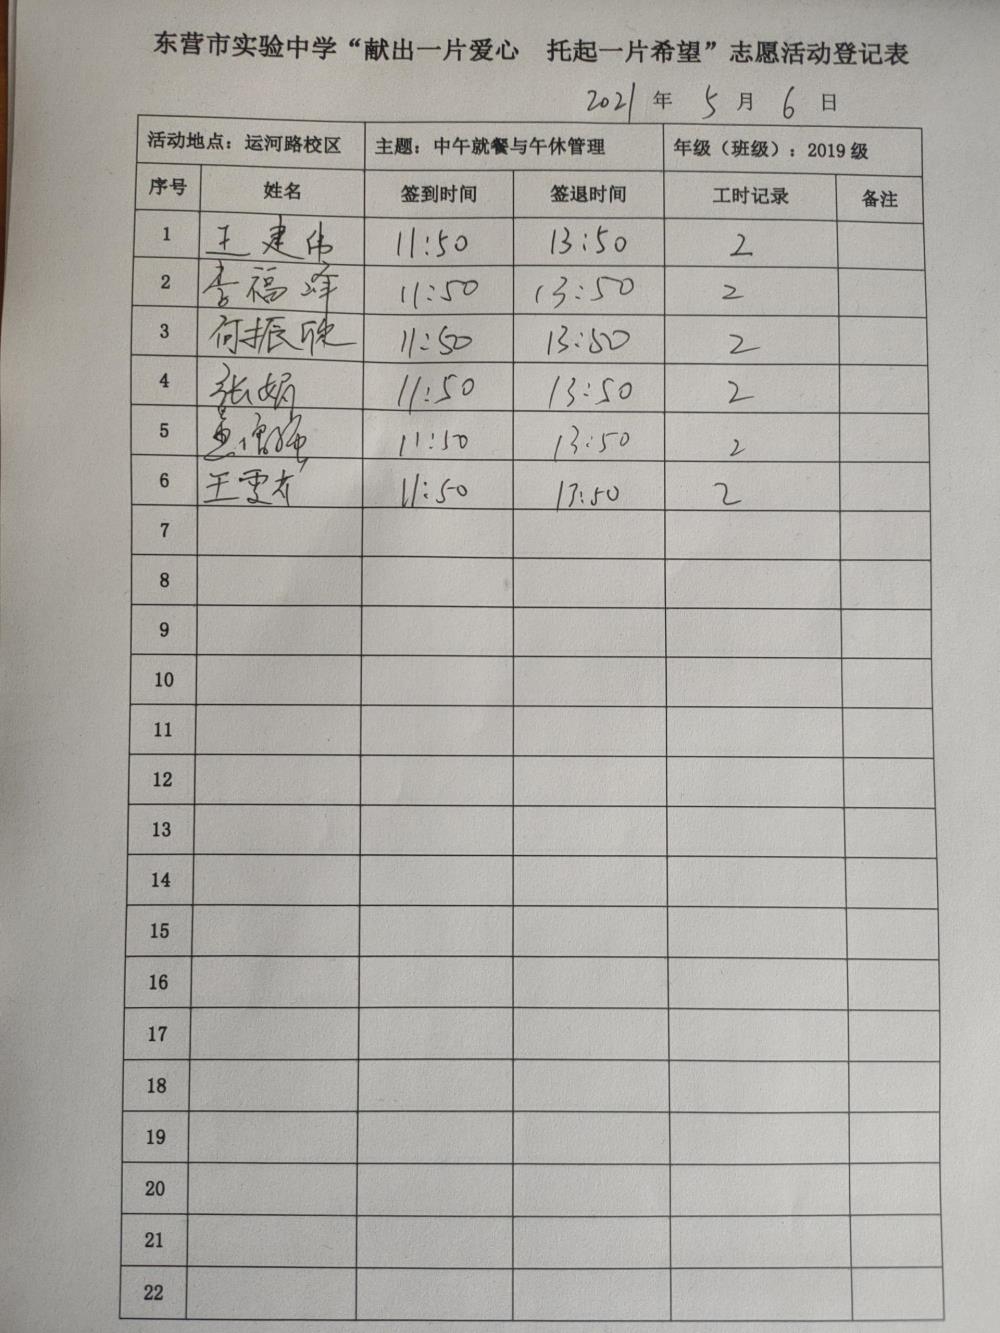 东营市实验中学“献出一片爱心 托起一片希望”志愿活动登记表
2021 年 5 月 6 日
活动地点：运河路校区 主题：中午就餐与午休管理 年级（班级）：2019 级
序号 姓名 签到时间 签退时间 工时记录 备注
1 王建伟 11:50 13:50 2
2 李福峰 11:50 13:50 2
3 何振 11:50 13:50 2
4 张娟 11:50 13:50 2
5 11:50 13:50 2
6 王雪 11:50 13:50 2
7
8
9
10
11
12
13
14
15
16
17
18
19
20
21
22